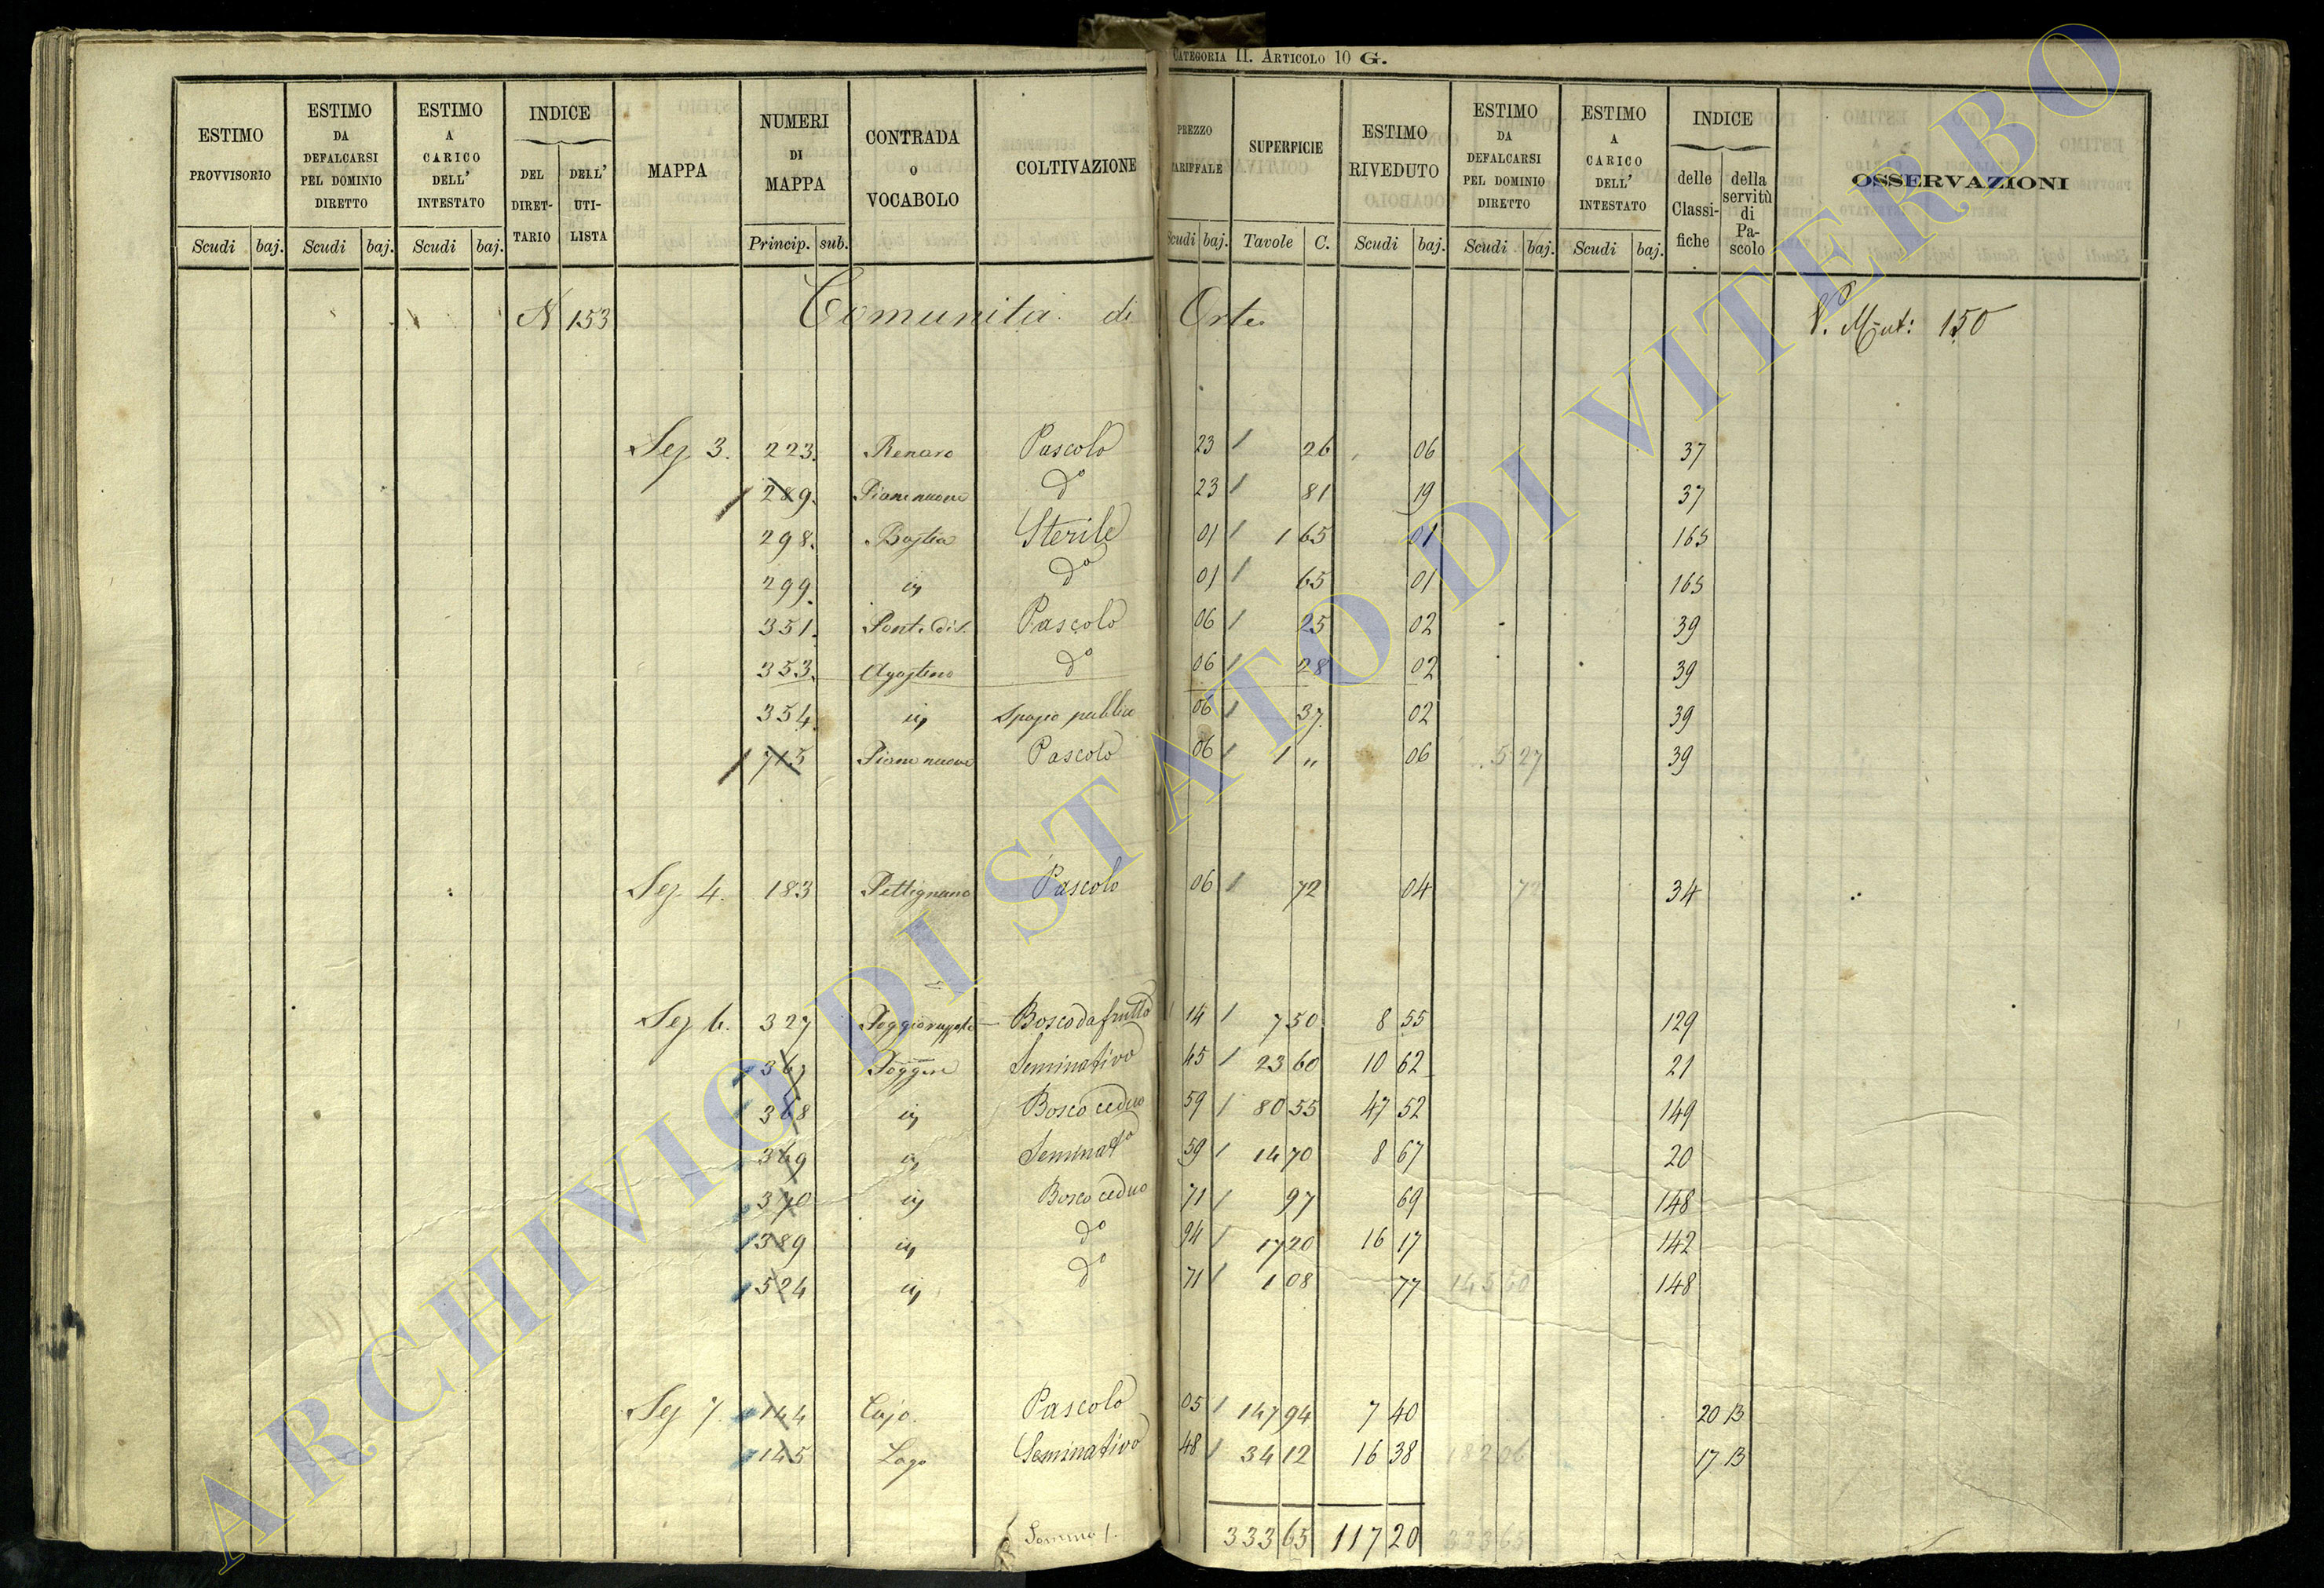 CATEGORIA II. ARTICOLO 10 G.
ESTIMO PROVVISORIO Scudi baj.
ESTIMO DA DEFALCARSI PEL DOMINIO DIRETTO Scudi baj.
ESTIMO A CARICO DELL' INTESTATO Scudi baj.
INDICE DEL DIRET-TARIO DELL' UTI-LISTA
MAPPA
NUMERI DI MAPPA Princip. sub.
CONTRADA o VOCABOLO
COLTIVAZIONE
PREZZO TARIFFALE Scudi baj.
SUPERFICIE Tavole C.
ESTIMO RIVEDUTO Scudi baj.
ESTIMO DA DEFALCARSI PEL DOMINIO DIRETTO Scudi baj.
ESTIMO A CARICO DELL' INTESTATO Scudi baj.
INDICE delle Classi-fiche della servitù di Pa-scolo
OSSERVAZIONI
N 153 Comunità di Orte V. Mut: 150
Sez 3. 223. Renaro Pascolo 23 26 06 37
289. Piane nuove do 23 81 19 37
298. Bastia Sterile 01 1 65 01 165
299. do 01 65 01 165
351. Pascolo 06 25 02 39
353. Agostino do 06 28 02 39
354. Spazio pubblico 06 37 02 39
715 Piane nuove Pascolo 06 1 „ 06 5 27 39
Sez 4. 183 Pettignano Pascolo 06 72 04 72 34
Sez 6. 327 Bosco da frutto 1 14 7 50 8 55 129
367 Poggere Seminativo 45 23 60 10 62 21
368 Bosco ceduo 59 80 55 47 52 149
369 Seminato 59 14 70 8 67 20
370 Bosco ceduo 71 97 69 148
389 do 94 17 20 16 17 142
524 do 71 1 08 77 145 60 148
Sez 7. 144 Cajo. Pascolo 05 147 94 7 40 20 B
145 Lago Seminativo 48 34 12 16 38 182 06 17 B
Somma 333 65 117 20 333 65
ARCHIVIO DI STATO DI VITERBO